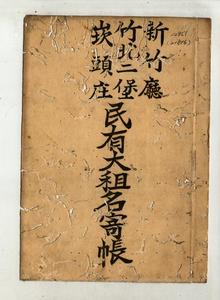 新竹廳
竹北二堡
崁頭庄
民有大租名寄帳